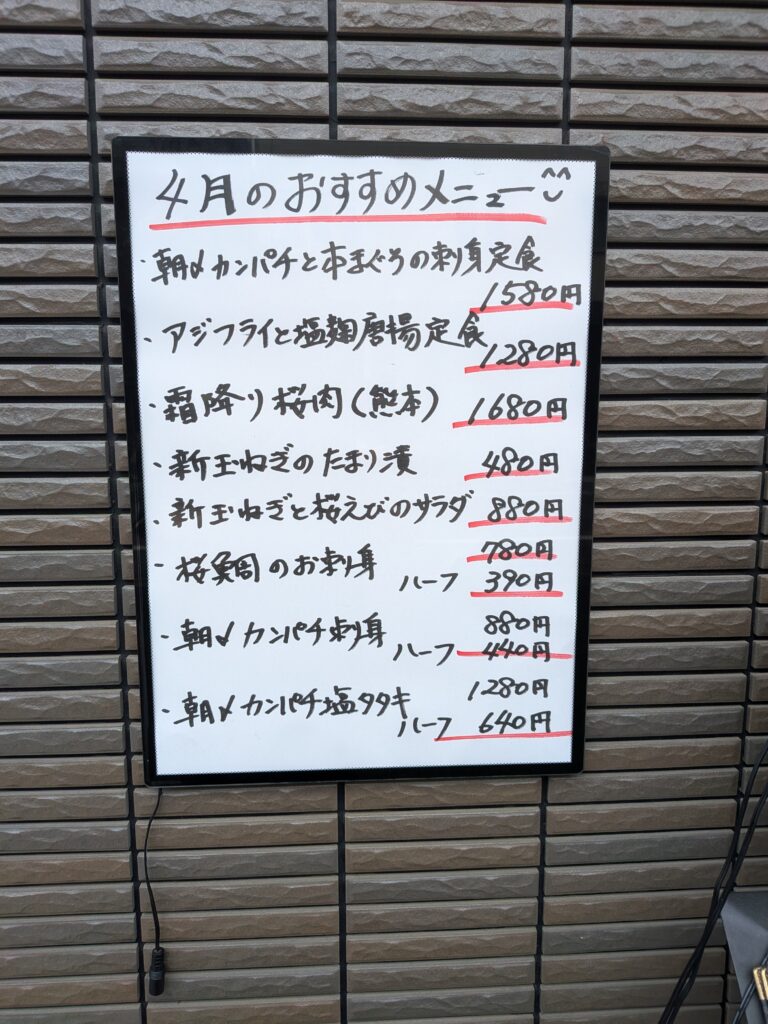 4月のおすすめメニュー^^
・朝〆カンパチと本まぐろの刺身定食
1580円
・アジフライと塩麹唐揚定食
1280円
・霜降り桜肉(熊本) 1680円
・新玉ねぎのたまり漬 480円
・新玉ねぎと桜えびのサラダ 880円
・桜鯛のお刺身 780円
ハーフ 390円
・朝〆カンパチ刺身 880円
ハーフ 440円
・朝〆カンパチ塩タタキ 1280円
ハーフ 640円